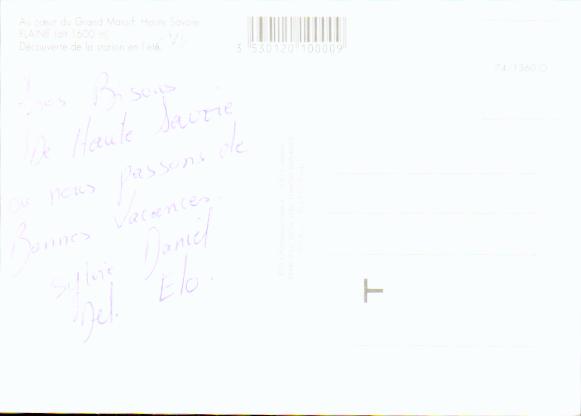 Au cœur du Grand Massif. Haute Savoie
FLAINE (alt 1600 m)
Découverte de la station en l'été.
3 530120 100009
74/1360 O
Gros Bisous
De Haute Savoie
ou nous passons de
Bonnes Vacances.
Sylvie Daniel
Del. Elo.